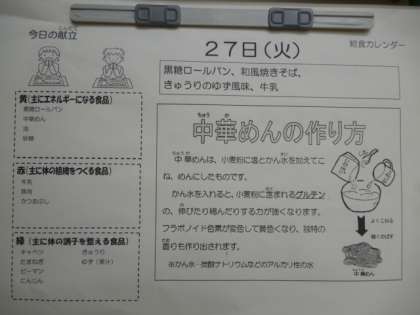 今日の献立
２７日（火）
給食カレンダー
黒糖ロールパン、和風焼きそば、
きゅうりのゆず風味、牛乳
黄（主にエネルギーになる食品）
黒糖ロールパン
中華めん
油
砂糖
赤（主に体の組織をつくる食品）
牛乳
豚肉
かつおぶし
緑（主に体の調子を整える食品）
キャベツ
きゅうり
たまねぎ
ゆず（果汁）
ピーマン
にんじん
中華めんの作り方
中華めんは、小麦粉に塩とかん水を加えてこ
ね、めんにしたものです。
かん水を入れると、小麦粉に含まれるグルテン
の、伸びたり縮んだりする力が強くなります。
フラボノイド色素が変色して黄色くなり、独特の
香りも作り出されます。
※かん水…炭酸ナトリウムなどのアルカリ性の水
よくこねる
細くのばす
中華めん